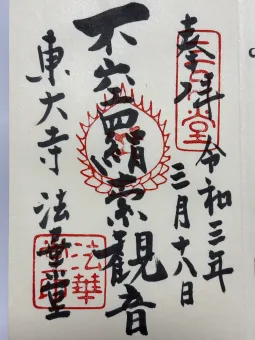 奉拝
令和三年
三月十八日
不空羂索観音
東大寺 法華堂
法華